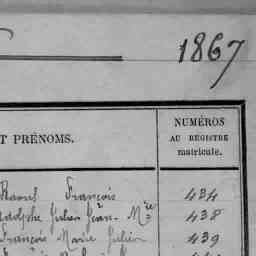 1867
T PRÉNOMS.
NUMÉROS
AU REGISTRE
matricule.
Raoul François 434
Adolphe Julien Jean-Mie 438
François Marie Julien 439